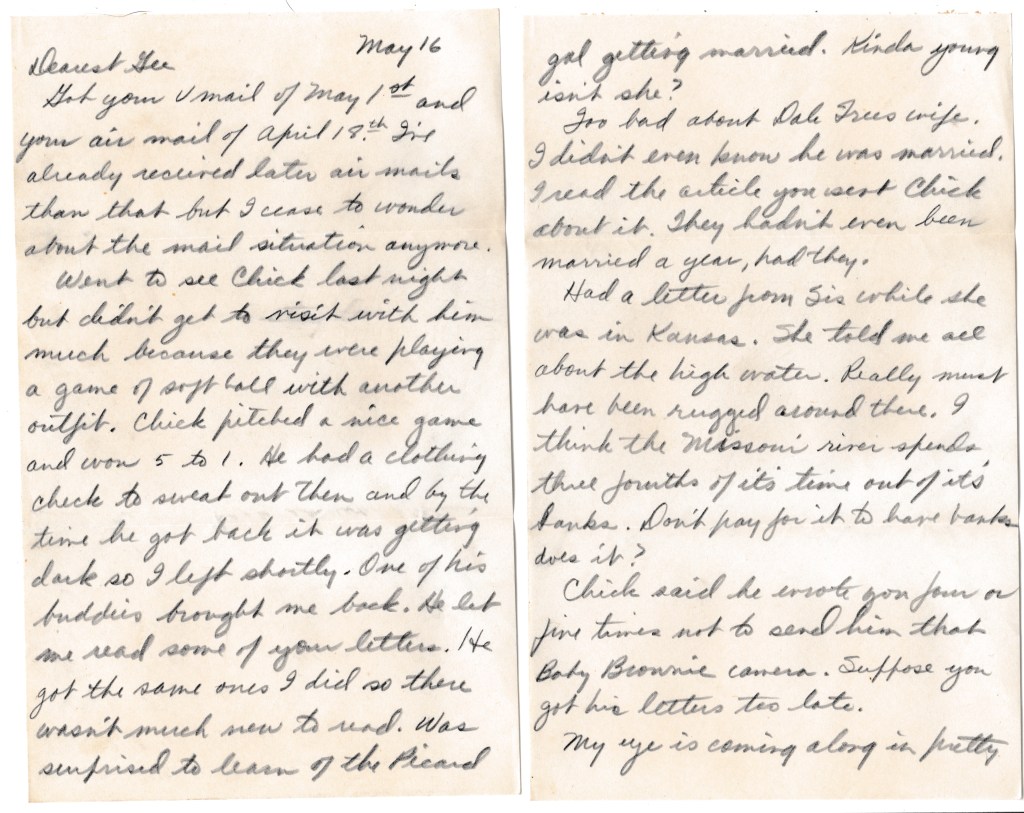 May 16
Dearest Gee
Got your V mail of May 1st and
your air mail of April 18th I've
already received later air mails
than that but I cease to wonder
about the mail situation anymore.
Went to see Chick last night
but didn't get to visit with him
much because they were playing
a game of soft ball with another
outfit. Chick pitched a nice game
and won 5 to 1. He had a clothing
check to sweat out then and by the
time he got back it was getting
dark so I left shortly. One of his
buddies brought me back. He let
me read some of your letters. He
got the same ones I did so there
wasn't much new to read. Was
surprised to learn of the Picard
gal getting married. Kinda young
isn't she?
Too bad about Dale Trees wife.
I didn't even know he was married.
I read the article you sent Chick
about it. They hadn't even been
married a year, had they.
Had a letter from Sis while she
was in Kansas. She told me all
about the high water. Really must
have been rugged around there. I
think the Missouri river spends
three fourths of it's time out of it's
banks. Don't pay for it to have banks
does it?
Chick said he wrote you four or
five times not to send him that
Baby Brownie camera. Suppose you
got his letters too late.
My eye is coming along in pretty